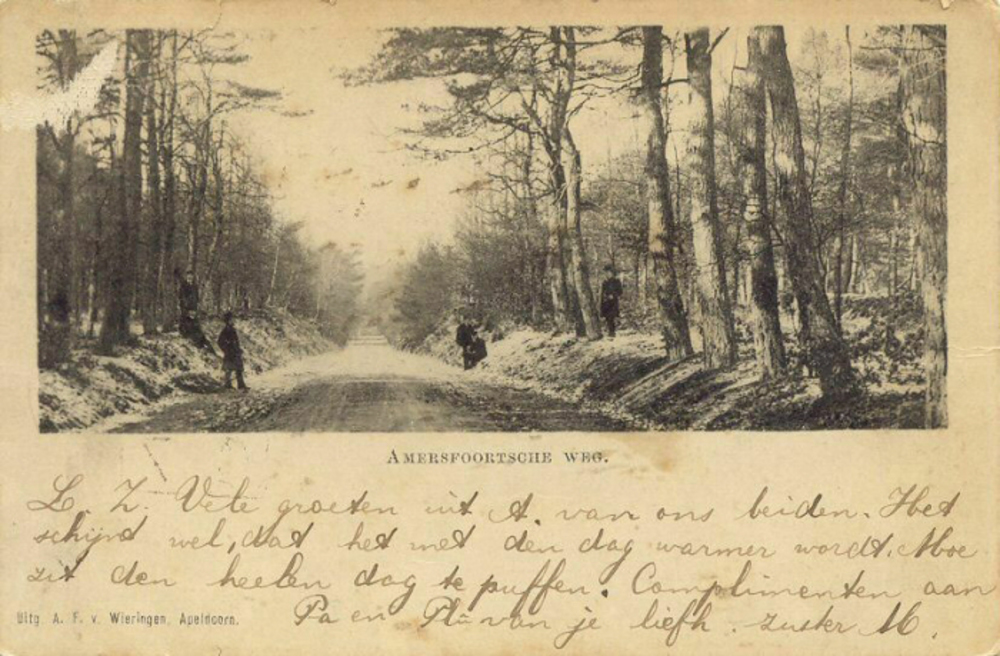 AMERSFOORTSCHE WEG.
L. Z. Vele groeten uit A. van ons beiden. Het
schijnt wel, dat het met den dag warmer wordt. Moe
zit den heelen dag te puffen. Complimenten aan
Pa en van je liefh. zuster M.
Uitg. A. F. v. Wieringen, Apeldoorn.